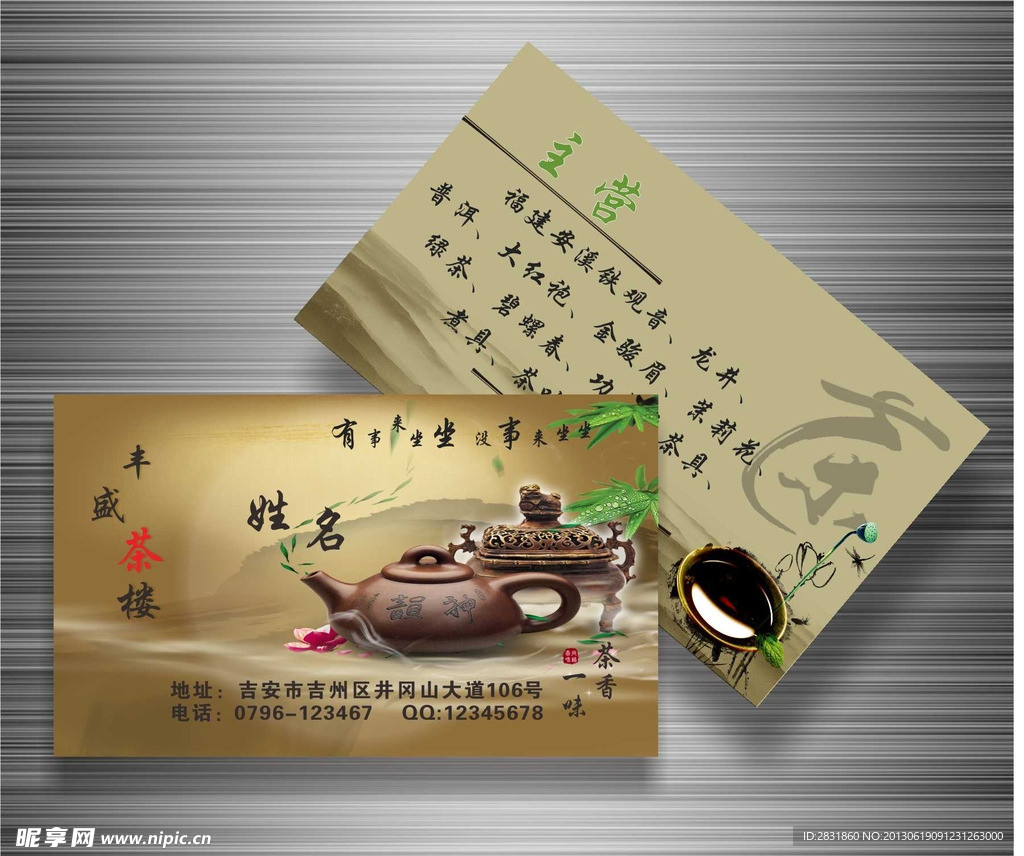 主营
福建安溪铁观音、龙井、
普洱、大红袍、金骏眉、茉莉花、
绿茶、碧螺春、功
茶具、
煮具、茶
有事来坐坐没事来坐坐
丰盛茶楼
姓名
韻神
茶香
一味
地址：吉安市吉州区井冈山大道106号
电话：0796-123467 QQ:12345678
昵享网 www.nipic.cn
ID:2831860 NO:20130619091231263000